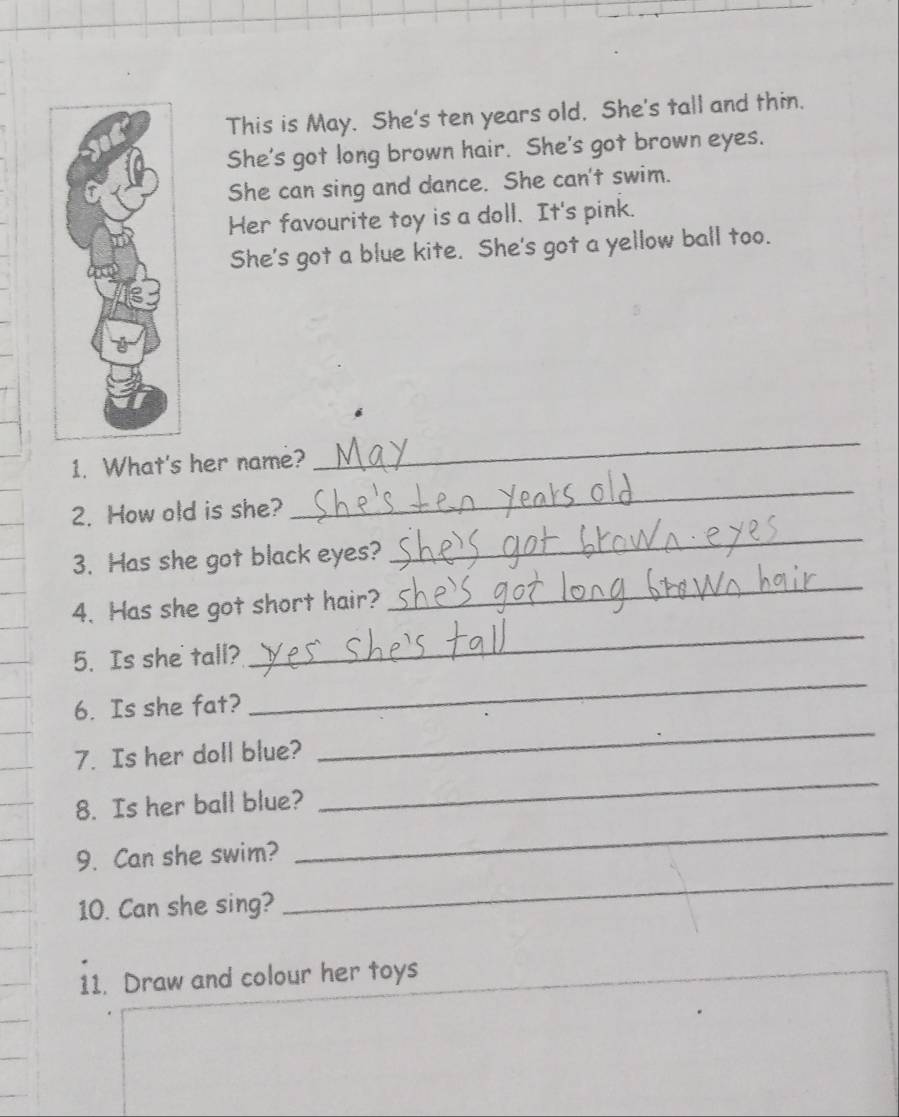 This is May. She's ten years old. She's tall and thin.
She's got long brown hair. She's got brown eyes.
She can sing and dance. She can't swim.
Her favourite toy is a doll. It's pink.
She's got a blue kite. She's got a yellow ball too.
1. What's her name? May
2. How old is she? She's ten years old
3. Has she got black eyes? She's got brown eyes
4. Has she got short hair? she's got long brown hair
5. Is she tall? yes she's tall
6. Is she fat?
7. Is her doll blue?
8. Is her ball blue?
9. Can she swim?
10. Can she sing?
11. Draw and colour her toys